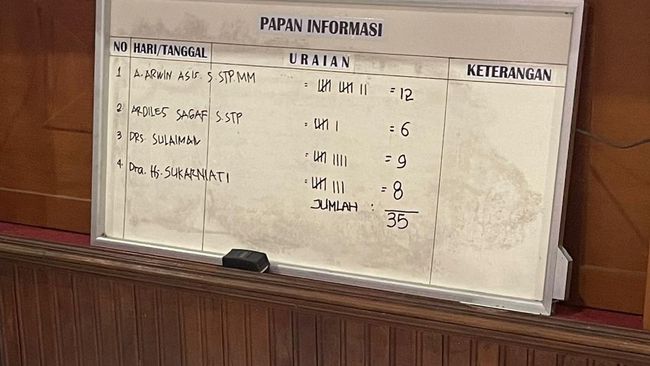 PAPAN INFORMASI
NO HARI/TANGGAL URAIAN KETERANGAN
1 A. ARWIN ASIS. S.STP.MM = 12
2. ARDILES SAGAF S.STP = 6
3 DRS. SULAIMAN = 9
4. Dra. Hj. SUKARNIATI = 8
JUMLAH : 35